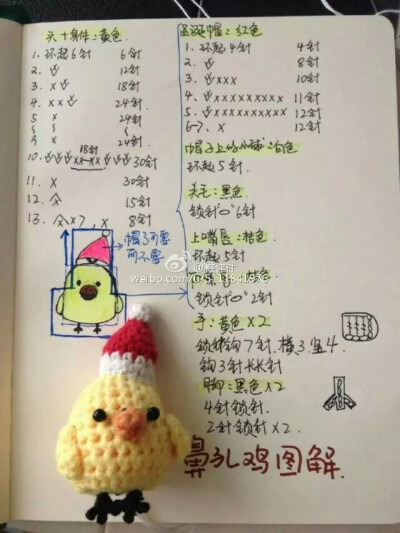 头+身体：黄色
1、环起6针 6针
2、V 12针
3、XV 18针
4、XXV 24针
5 X 24针
X 24针
18针
10、VVVXX~XXVVV 30针
11、 X 30针
12、A 15针
13、A×7，X 8针
圣诞帽：红色
1、环起4针 4针
2、V 8针
3、VXXX 10针
4、VXXXXXXXXX 11针
5、VXXXXXXXXXX 12针
6~7、X 12针
帽子上的小球：白色
环起5针
头毛：黑色
锁针"0"6针
上嘴唇：桔色
环起5针
锁针"0"2针
手：黄色×2
锁针钩7针，横3，竖4.
钩3针长长针
脚：黑色×2
4针锁针
2针锁针×2
帽子可要
可不要
鼻孔鸡图解